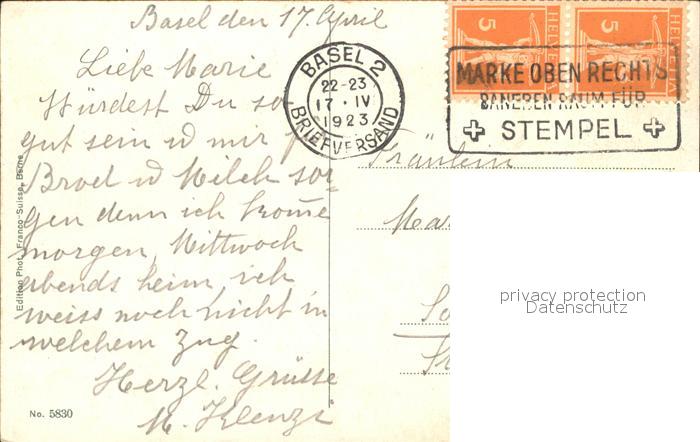 Basel den 17. April
Liebe Marie
Würdest Du so
gut sein u mir f
Brod u Milch sor-
gen denn ich kome
morgen, Mittwoch
abends heim, ich
weiss noch nicht in
welchem Zug.
Herzl. Grüsse
M.
No. 5830
Edition Phot. Franco-Suisse, Berne
BASEL 2
22-23
17·IV
1923
BRIEFVERSAND
5 HELVETIA
5 HELVETIA
MARKE OBEN RECHTS
DANEBEN RAUM FÜR
STEMPEL
Fräulein
Mar
privacy protection
Datenschutz